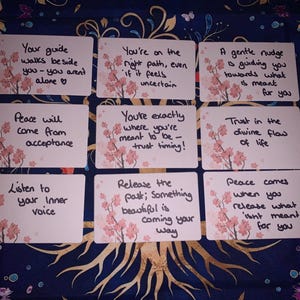 Your guide
walks beside
you - you arent
alone ♡
You're on the
right path, even
if it feels
uncertain
A gentle nudge
is guiding you
towards what
is meant
for you
Peace will
come from
acceptance
You're exactly
where you're
meant to be -
trust timing!
Trust in the
divine flow
of life
Listen to
your inner
voice
Release the
past; Something
beautiful is
coming your
way
Peace comes
when you
release what
isnt meant
for you